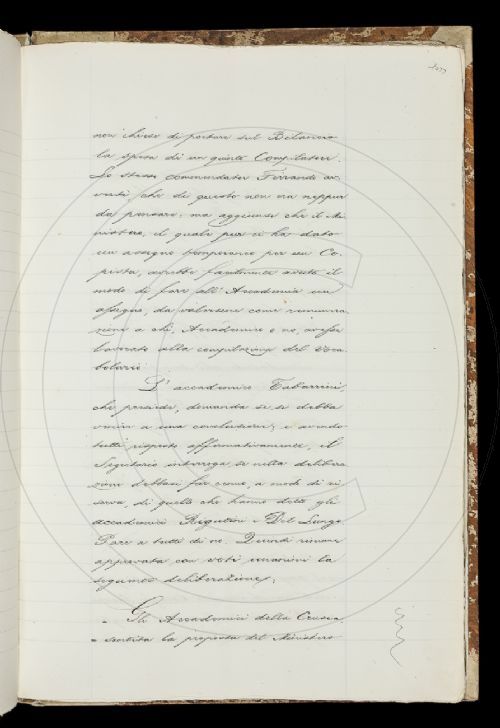 non chiese di portare sul Bilancio
la spesa di un quinto Compilatore.
Lo stesso Commendator Ferrando av-
vertì che di questo non era neppur
da pensare; ma aggiunse che il Mi-
nistero, il quale pur ci ha dato
un assegno temporaneo per un Co-
pista, avrebbe facilmente avuto il
modo di fare all'Accademia un
assegno, da valersene come rimunera-
zione a chi, Accademico o no, avesse
lavorato alla compilazione del Voca-
bolario.
L'accademico Tabarrini,
che presiede, domanda se si debba
venire a una conclusione; e avendo
tutti risposto affermativamente, il
Segretario interroga se nella delibera-
zione debbasi far cenno, a modo di ri-
serva, di quello che hanno detto gli
accademici Rigutini e Del Lungo.
Pare a tutti di no. Quindi rimane
approvata con voti unanimi la
seguente deliberazione:
„ Gli Accademici della Crusca
„ sentita la proposta del Ministero